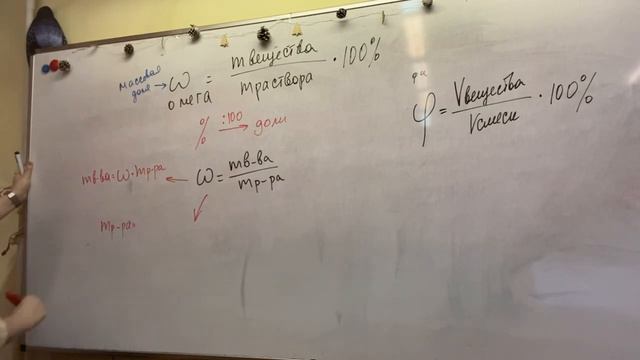 массовая доля → ω = m вещества / m раствора · 100%
омега
% :100 → доли
mв-ва = ω · mр-ра ← ω = mв-ва / mр-ра
mр-ра=
фи
φ = V вещества / V смеси · 100%